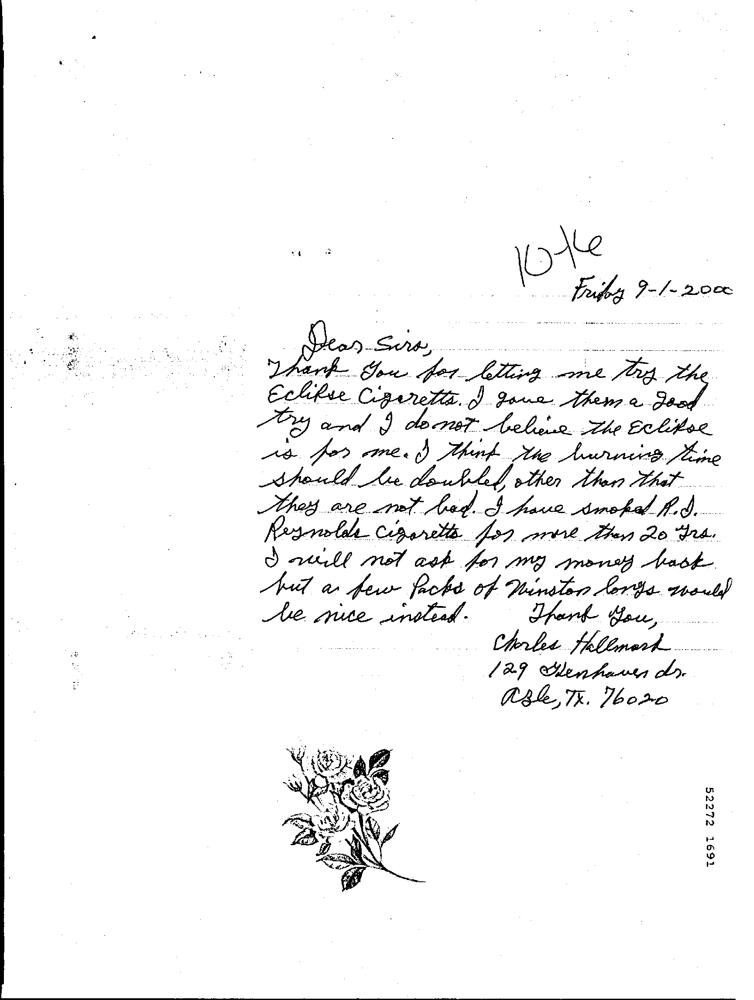 10-16
Friday 9-1-2000
Dear Sirs,
Thank You for letting me try the
Eclikse Cigeretts. I gave them a good
try and I do not believe the Eclikse
is for me. I think the burning time
should be doubled, other than that
they are not bad. I have smoked R.J.
Reynolds Cigaretts for more than 20 Yrs.
I will not ask for my money back
but a few Packs of Winston longs would
be nice instead. Thank You,
Charles Hallmark
129 dr.
Azle, TX. 76020
52272 1691